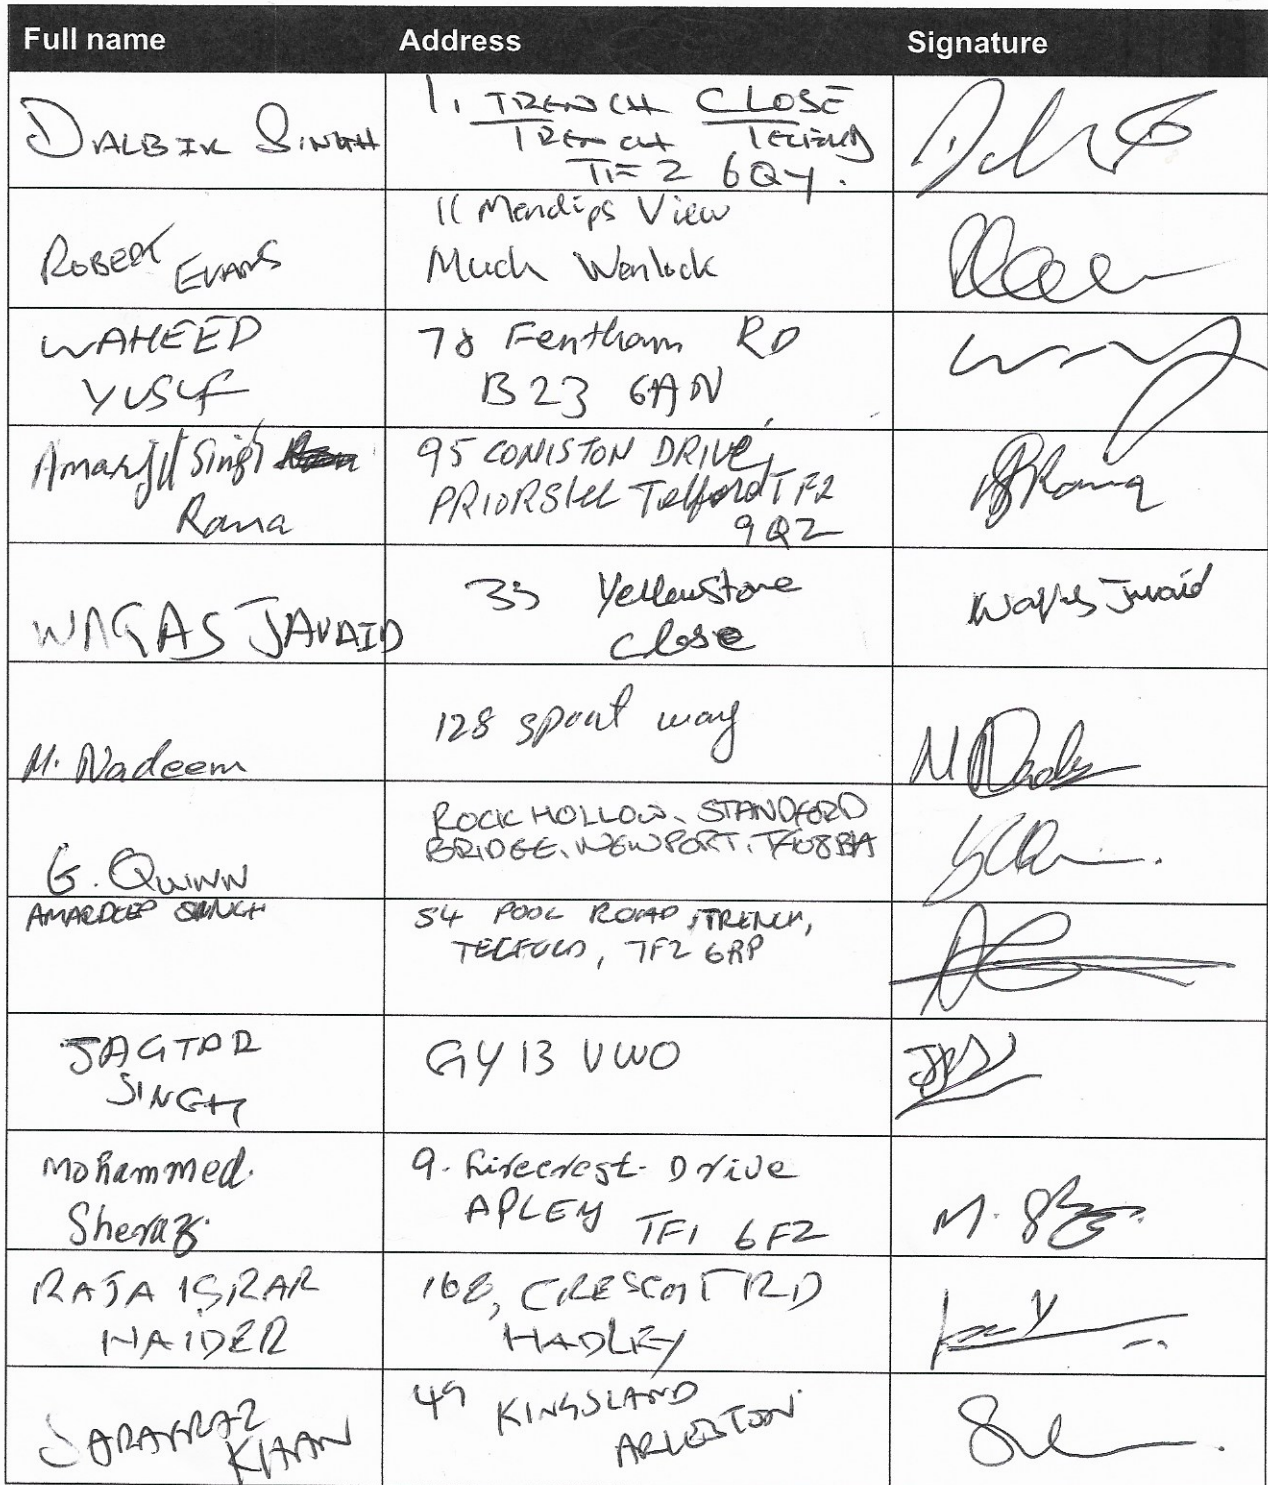 Full name Address Signature
DALBIR SINGH
1, TRENCH CLOSE
TRENCH TELFORD
TF2 6QY.
ROBERT EVANS
11 Mendips View
Much Wenlock
WAHEED
YUSUF
78 Fentham RD
B23 6AN
Amarjit Singh
Rana
95 CONISTON DRIVE,
PRIORSLEE Telford TF2
9QZ
WAQAS JAVAID
33 Yellowstone
Close
Waqas Javaid
M. Nadeem
128 spout way
G. QUINN
ROCK HOLLOW, STANDFORD
BRIDGE, NEWPORT, TF10 8BA
AMARDEEP SINGH
54 POOL ROAD, TRENCH,
TELFORD, TF2 6RP
JAGTAR
SINGH
GY13 VWO
Mohammed.
Sheraz.
9. Firecrest Drive
APLEY TF1 6FZ
RAJA ISRAR
HAIDER
168, CRESCENT RD
HADLEY
SARAFRAZ
KHAN
49 KINGSLAND
ARLESTON